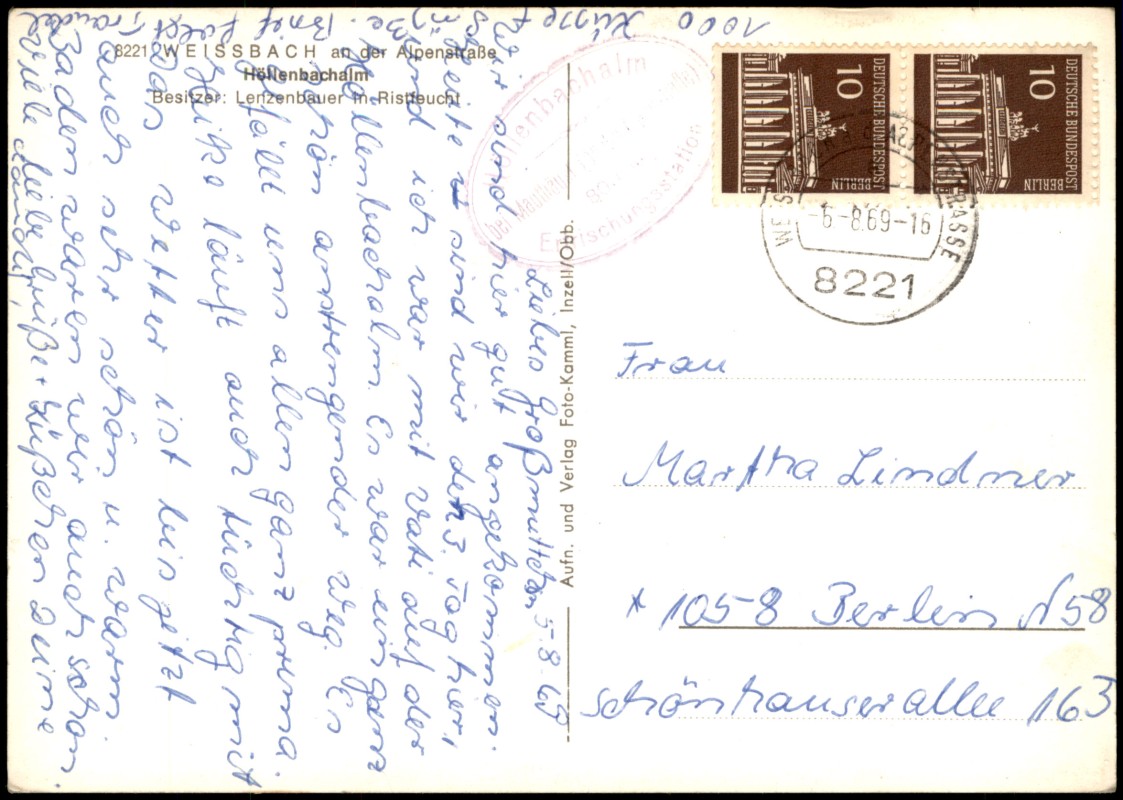 8221 WEISSBACH an der Alpenstraße
Höllenbachalm
Besitzer: Lenzenbauer in Ristfeucht
Aufn. und Verlag Foto-Kamml, Inzell/Obb.
Höllenbachalm
Erfrischungsstation
10
DEUTSCHE BUNDESPOST
BERLIN
10
DEUTSCHE BUNDESPOST
BERLIN
-6-8.69-16
8221
Liebes Großmuttchen 5.8.69
Wir sind hier gut angekommen.
Heute sind wir den 3. Tag hier,
und ich war mit Vati auf der
Höllenbachalm. Es war ein ganz
schön anstrengender Weg. Es
gefällt uns allen ganz prima.
Heiko läuft auch tüchtig mit
Das Wetter ist bis jetzt
auch sehr schön u. warm
Baden waren wir auch schon.
Viele liebe Grüße + Küßchen Deine
1000 Küsse
Brief folgt
Traudel
Frau
Martha Lindner
* 1058 Berlin N58
Schönhauserallee 163